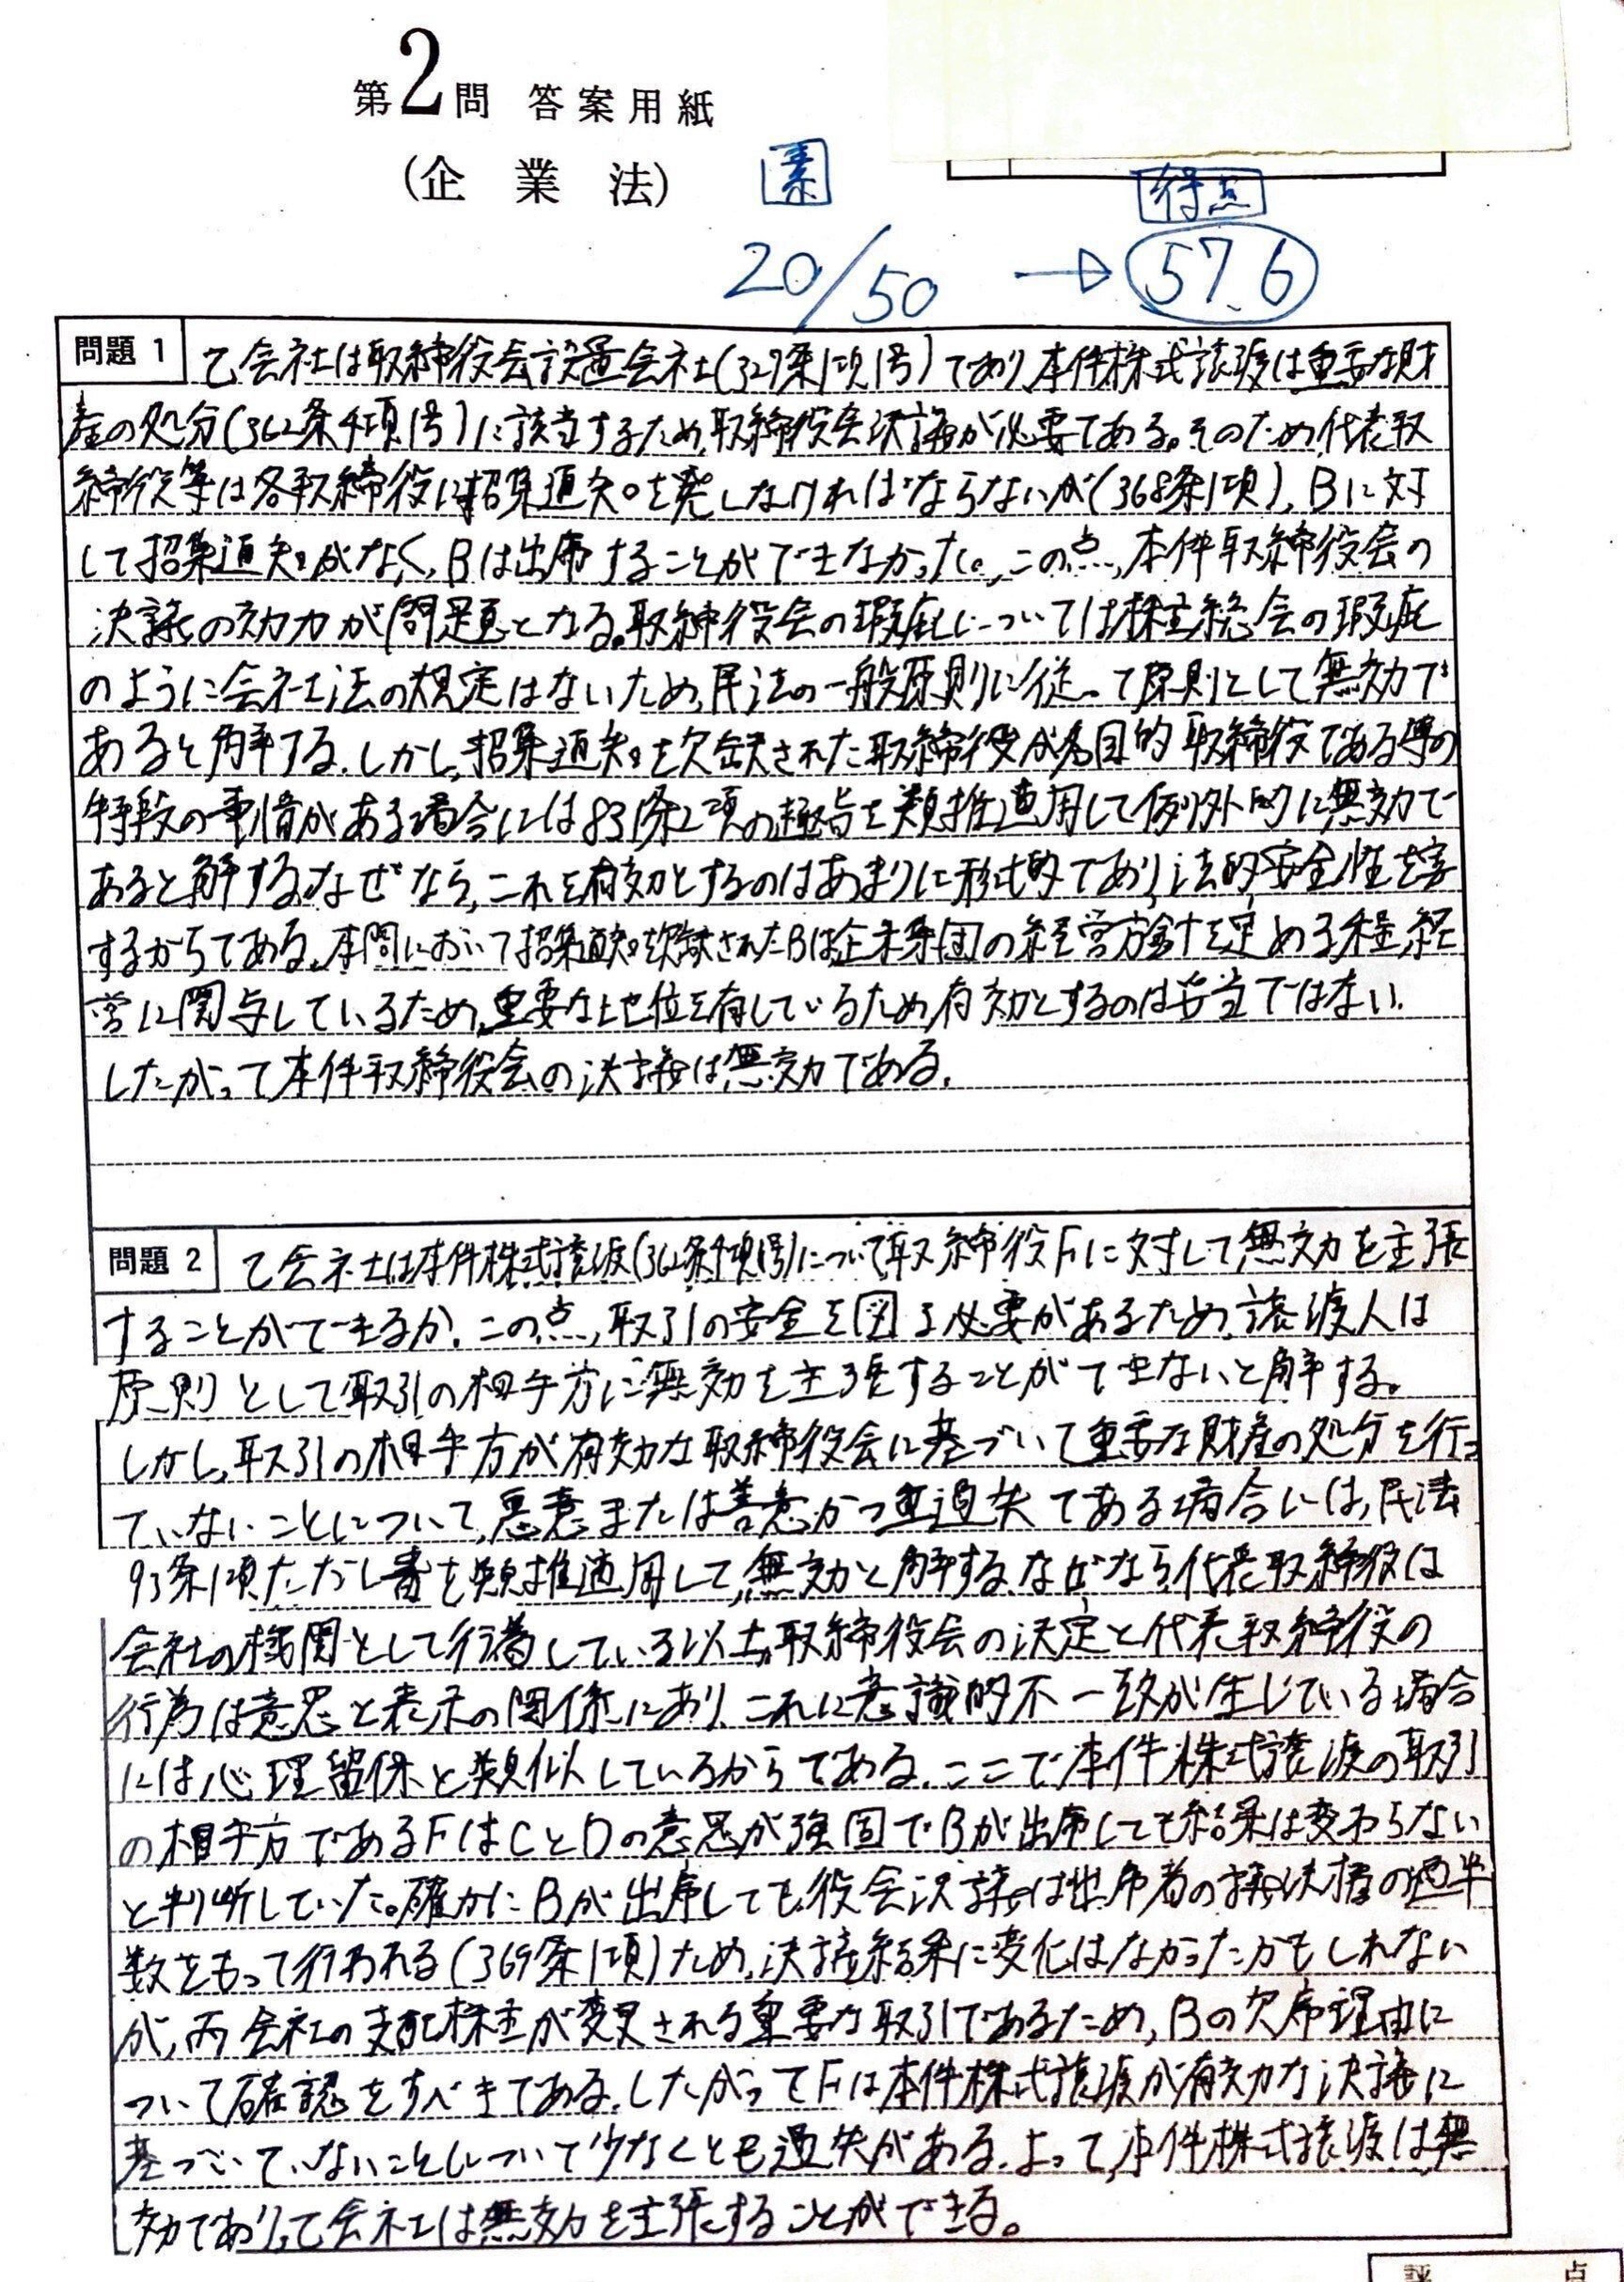 第2問 答案用紙
(企業法)
素
得点
20/50 → 57.6
問題 1 乙会社は取締役会設置会社(327条1項1号)であり、本件株式譲渡は重要な財
産の処分(362条4項1号)に該当するため、取締役会決議が必要である。そのため、代表取
締役等は各取締役に招集通知を発しなければならないが(368条1項)、Bに対
して招集通知がなく、Bは出席することができなかった。この点、本件取締役会の
決議の効力が問題となる。取締役会の瑕疵については株主総会の瑕疵
のように会社法の規定はないため、民法の一般原則に従って原則として無効で
あると解する。しかし、招集通知を欠缺された取締役が名目的取締役である等の
特段の事情がある場合には831条2項の趣旨を類推適用して例外的に無効で
あると解する。なぜなら、これを有効とするのはあまりに形式的であり、法的安全性を害
するからである。本問において招集通知を欠缺されたBは企業集団の経営方針を定める程、経
営に関与しているため、重要な地位を有しているため、有効とするのは妥当ではない。
したがって本件取締役会の決議は無効である。
問題 2 乙会社は本件株式譲渡(362条4項1号)について取締役Fに対して無効を主張
することができるか。この点、取引の安全を図る必要があるため、譲渡人は
原則として取引の相手方に無効を主張することができないと解する。
しかし、取引の相手方が有効な取締役会に基づいて重要な財産の処分を行っ
ていないことについて、悪意または善意かつ重過失である場合には、民法
93条1項ただし書を類推適用して、無効と解する。なぜなら、代表取締役は
会社の機関として行為している以上、取締役会の決定と代表取締役の
行為は意思と表示の関係にあり、これに意識的不一致が生じている場合
には心理留保と類似しているからである。ここで本件株式譲渡の取引
の相手方であるFはCとDの意思が強固でBが出席しても結果は変わらない
と判断していた。確かにBが出席しても、役会決議は出席者の議決権の過半
数をもって行われる(369条1項)ため、決議結果に変化はなかったかもしれない
が、両会社の支配株主が変更される重要な取引であるため、Bの欠席理由に
ついて確認をすべきである。したがってFは本件株式譲渡が有効な決議に
基づいていないことについて少なくとも過失がある。よって、本件株式譲渡は無
効であり、乙会社は無効を主張することができる。
評 点